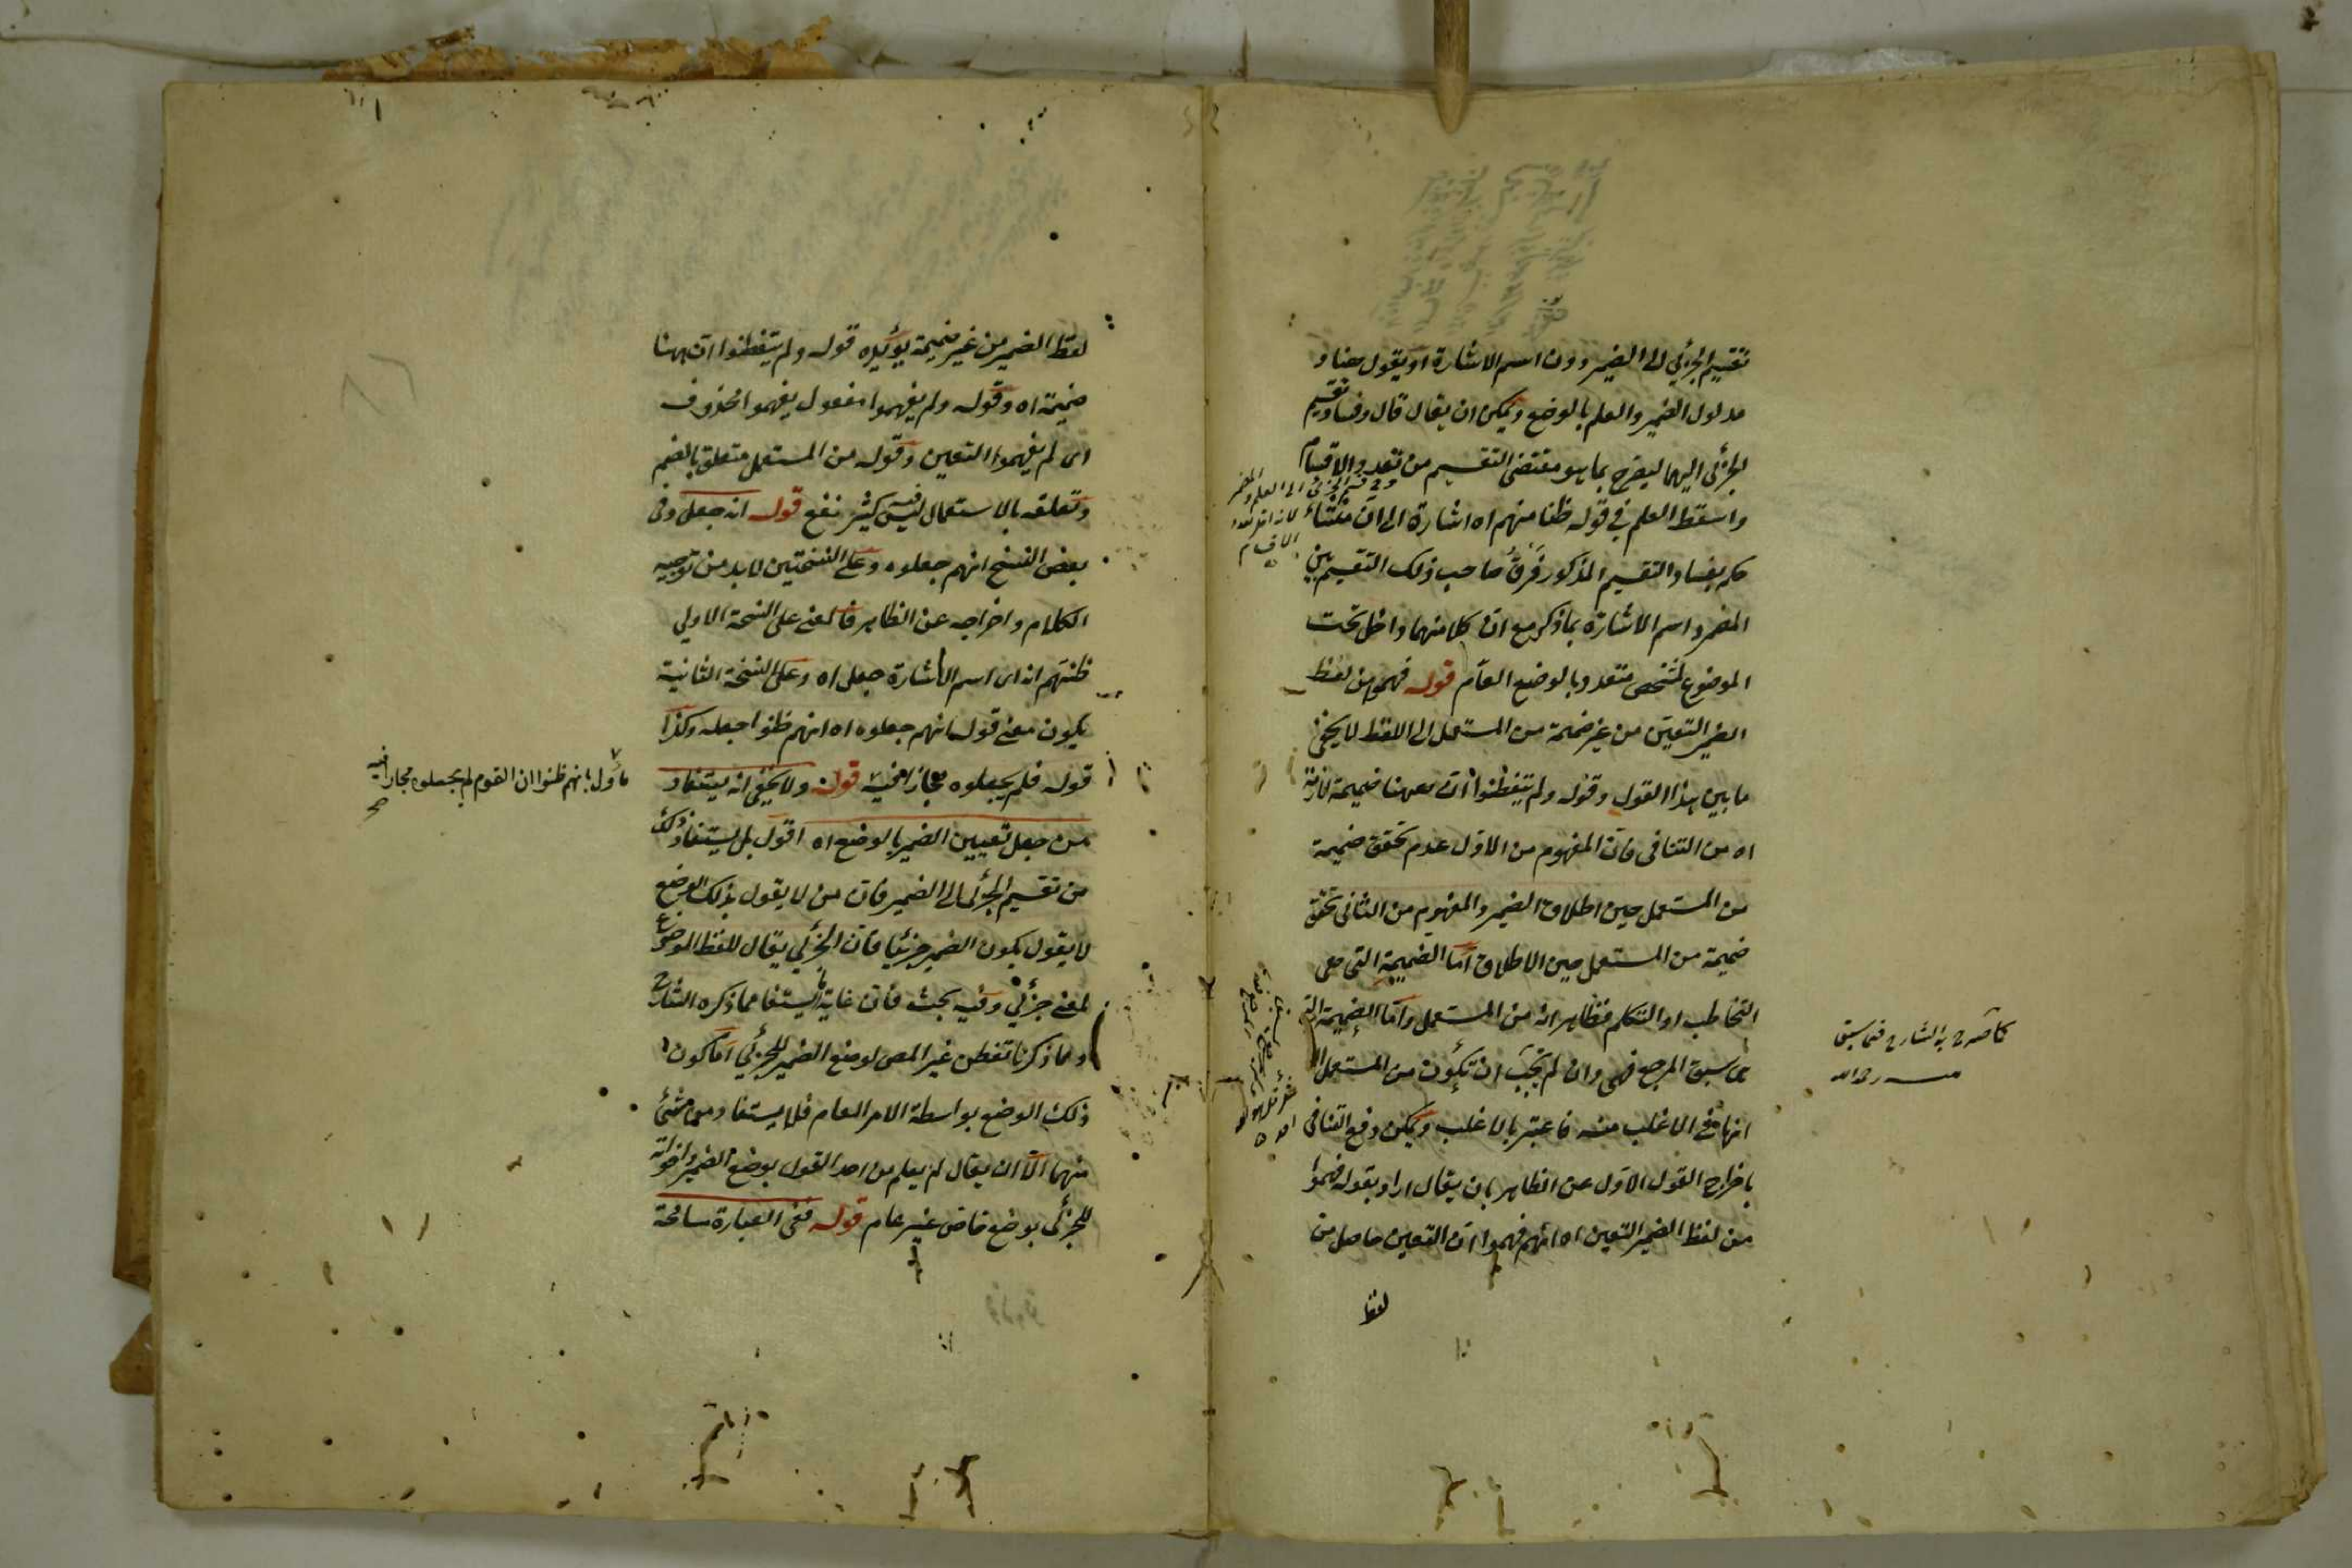 تقسيم الجزئي الى الضمير دون اسم الاشارة او يقول هنا و
مدلول الضمير والعلم بالوضع ويمكن ان يقال قال وفساد تقسيم
الجزئي اليهما ليصرح بما هو مقتضى التقسيم من تعدد الاقسام
واسقط العلم في قوله ظنا منهم اه اشارة الى ان منشاء
حكم بفساد التقسيم المذكور فرق صاحب ذلك التقسيم بين
المضمر واسم الاشارة بما ذكر مع ان كلا منهما داخل تحت
الموضوع لمشخص متعدد بالوضع العام قوله فهموا من لفظ
الضمير التعين من غير ضميمة من المستعمل الى اللفظ لا يخفى
ما بين هذا القول وقوله ولم يتفطنوا ان ههنا ضميمة لازمة
اه من التنافى فان المفهوم من الاول عدم تحقق ضميمة
من المستعمل حين اطلاق الضمير والمفهوم من الثانى تحقق
ضميمة من المستعمل حين الاطلاق اما الضميمة التى هى
التخاطب او التكلم فظاهر انه من المستعمل واما الضميمة التى
هى سبق المرجع فهى وان لم يجب ان تكون من المستعمل الا
انها فى الاغلب منه فاعتبر بالاغلب ويمكن دفع التنافى
باخراج القول الاول عن الظاهر بان يقال اراد بقوله فهموا
من لفظ الضمير التعين اه انهم فهموا ان التعين حاصل من
لفظ
وفى تقسيم الجزئى الى العلم والمضمر
الاقسام
كما صرح به الشارح فيما سبق
منه رحمه الله
لفظ الضمير من غير ضميمة يؤيده قوله ولم يتفطنوا ان ههنا
ضميمة اه وقوله ولم يفهموا مفعول يفهموا محذوف
اى لم يفهموا التعين وقوله من المستعمل متعلق بالضم
وتعلقه بالاستعمال ليس فيه كثير نفع قوله انه جعل وفى
بعض النسخ انهم جعلوه وعلى النسختين لا بد من توجيه
الكلام واخراجه عن الظاهر فالمعنى على النسخة الاولى
ظنهم انه اى اسم الاشارة جعل اه وعلى النسخة الثانية
يكون معنى قوله انهم جعلوه اه انهم ظنوا جعله وكذا
قوله فلم يجعلوه مجازا فيه قوله ولا يخفى انه يستفاد
من جعل تعيين الضمير بالوضع اه اقول بل يستفاد ذلك
من تقسيم الجزئى الى الضمير فان من لا يقول بذلك الوضع
لا يقول بكون الضمير جزئيا فان الجزئي يقال للفظ الموضوع
لمعنى جزئي وفيه بحث فان غاية ما يستفاد مما ذكره الشارح
ومما ذكرنا تفطن غير المص لوضع الضمير للجزئي اما كون
ذلك الوضع بواسطة الامر العام فلا يستفاد من شئ
منهما الا ان يقال لم يعلم من احد القول بوضع الضمير واخواته
للجزئى بوضع خاص غير عام قوله ففى العبارة مسامحة
مأول بانهم ظنوا ان القوم لم يجعلوه مجازا فيه
صح